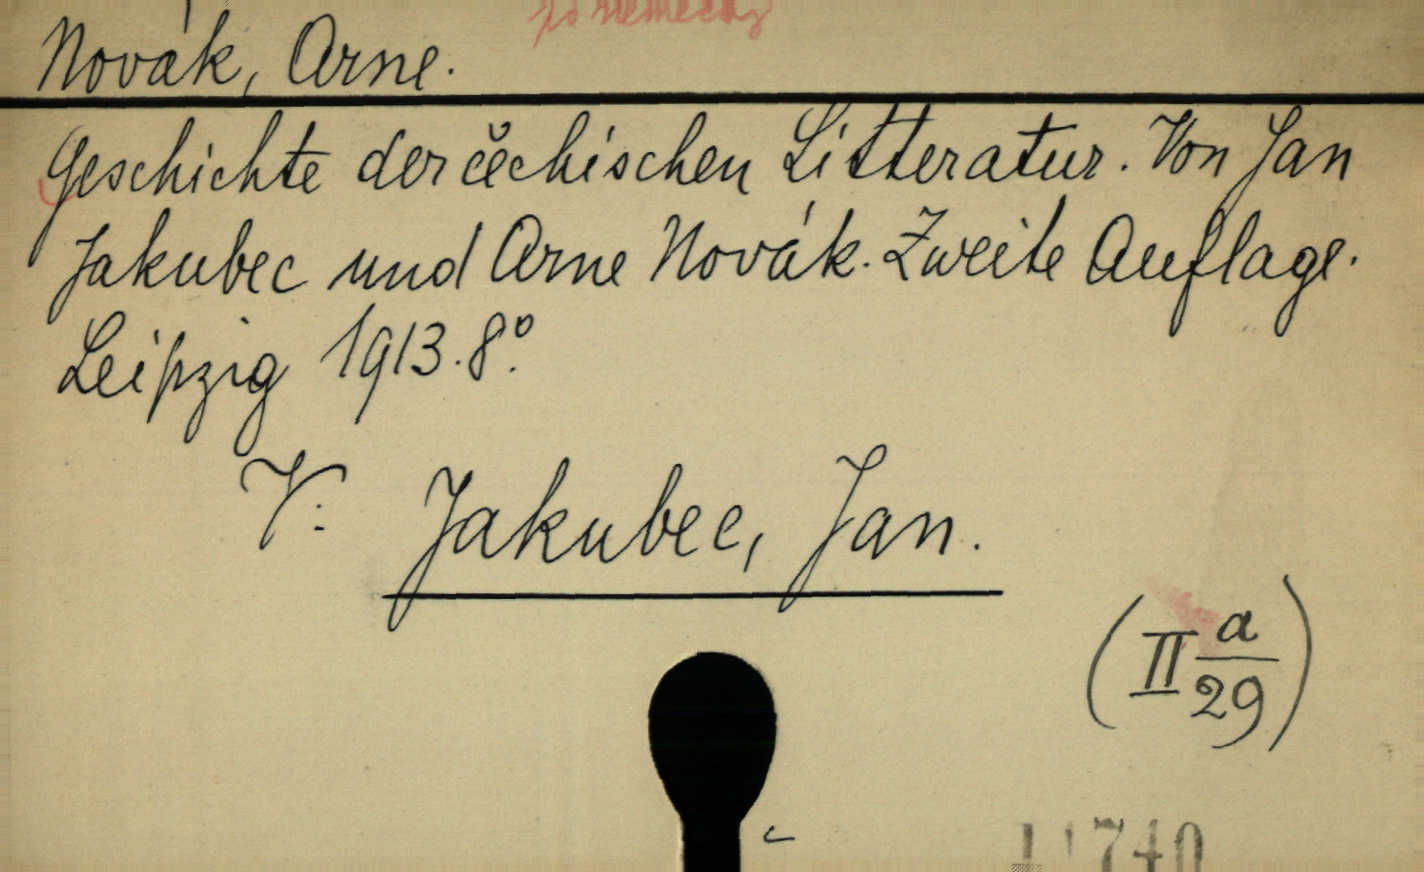 po německy
Novák, Arne.
Geschichte der čechischen Litteratur. Von Jan
Jakubec und Arne Novák. Zweite Auflage.
Leipzig 1913. 8º.
V: Jakubec, Jan.
(II a/29)